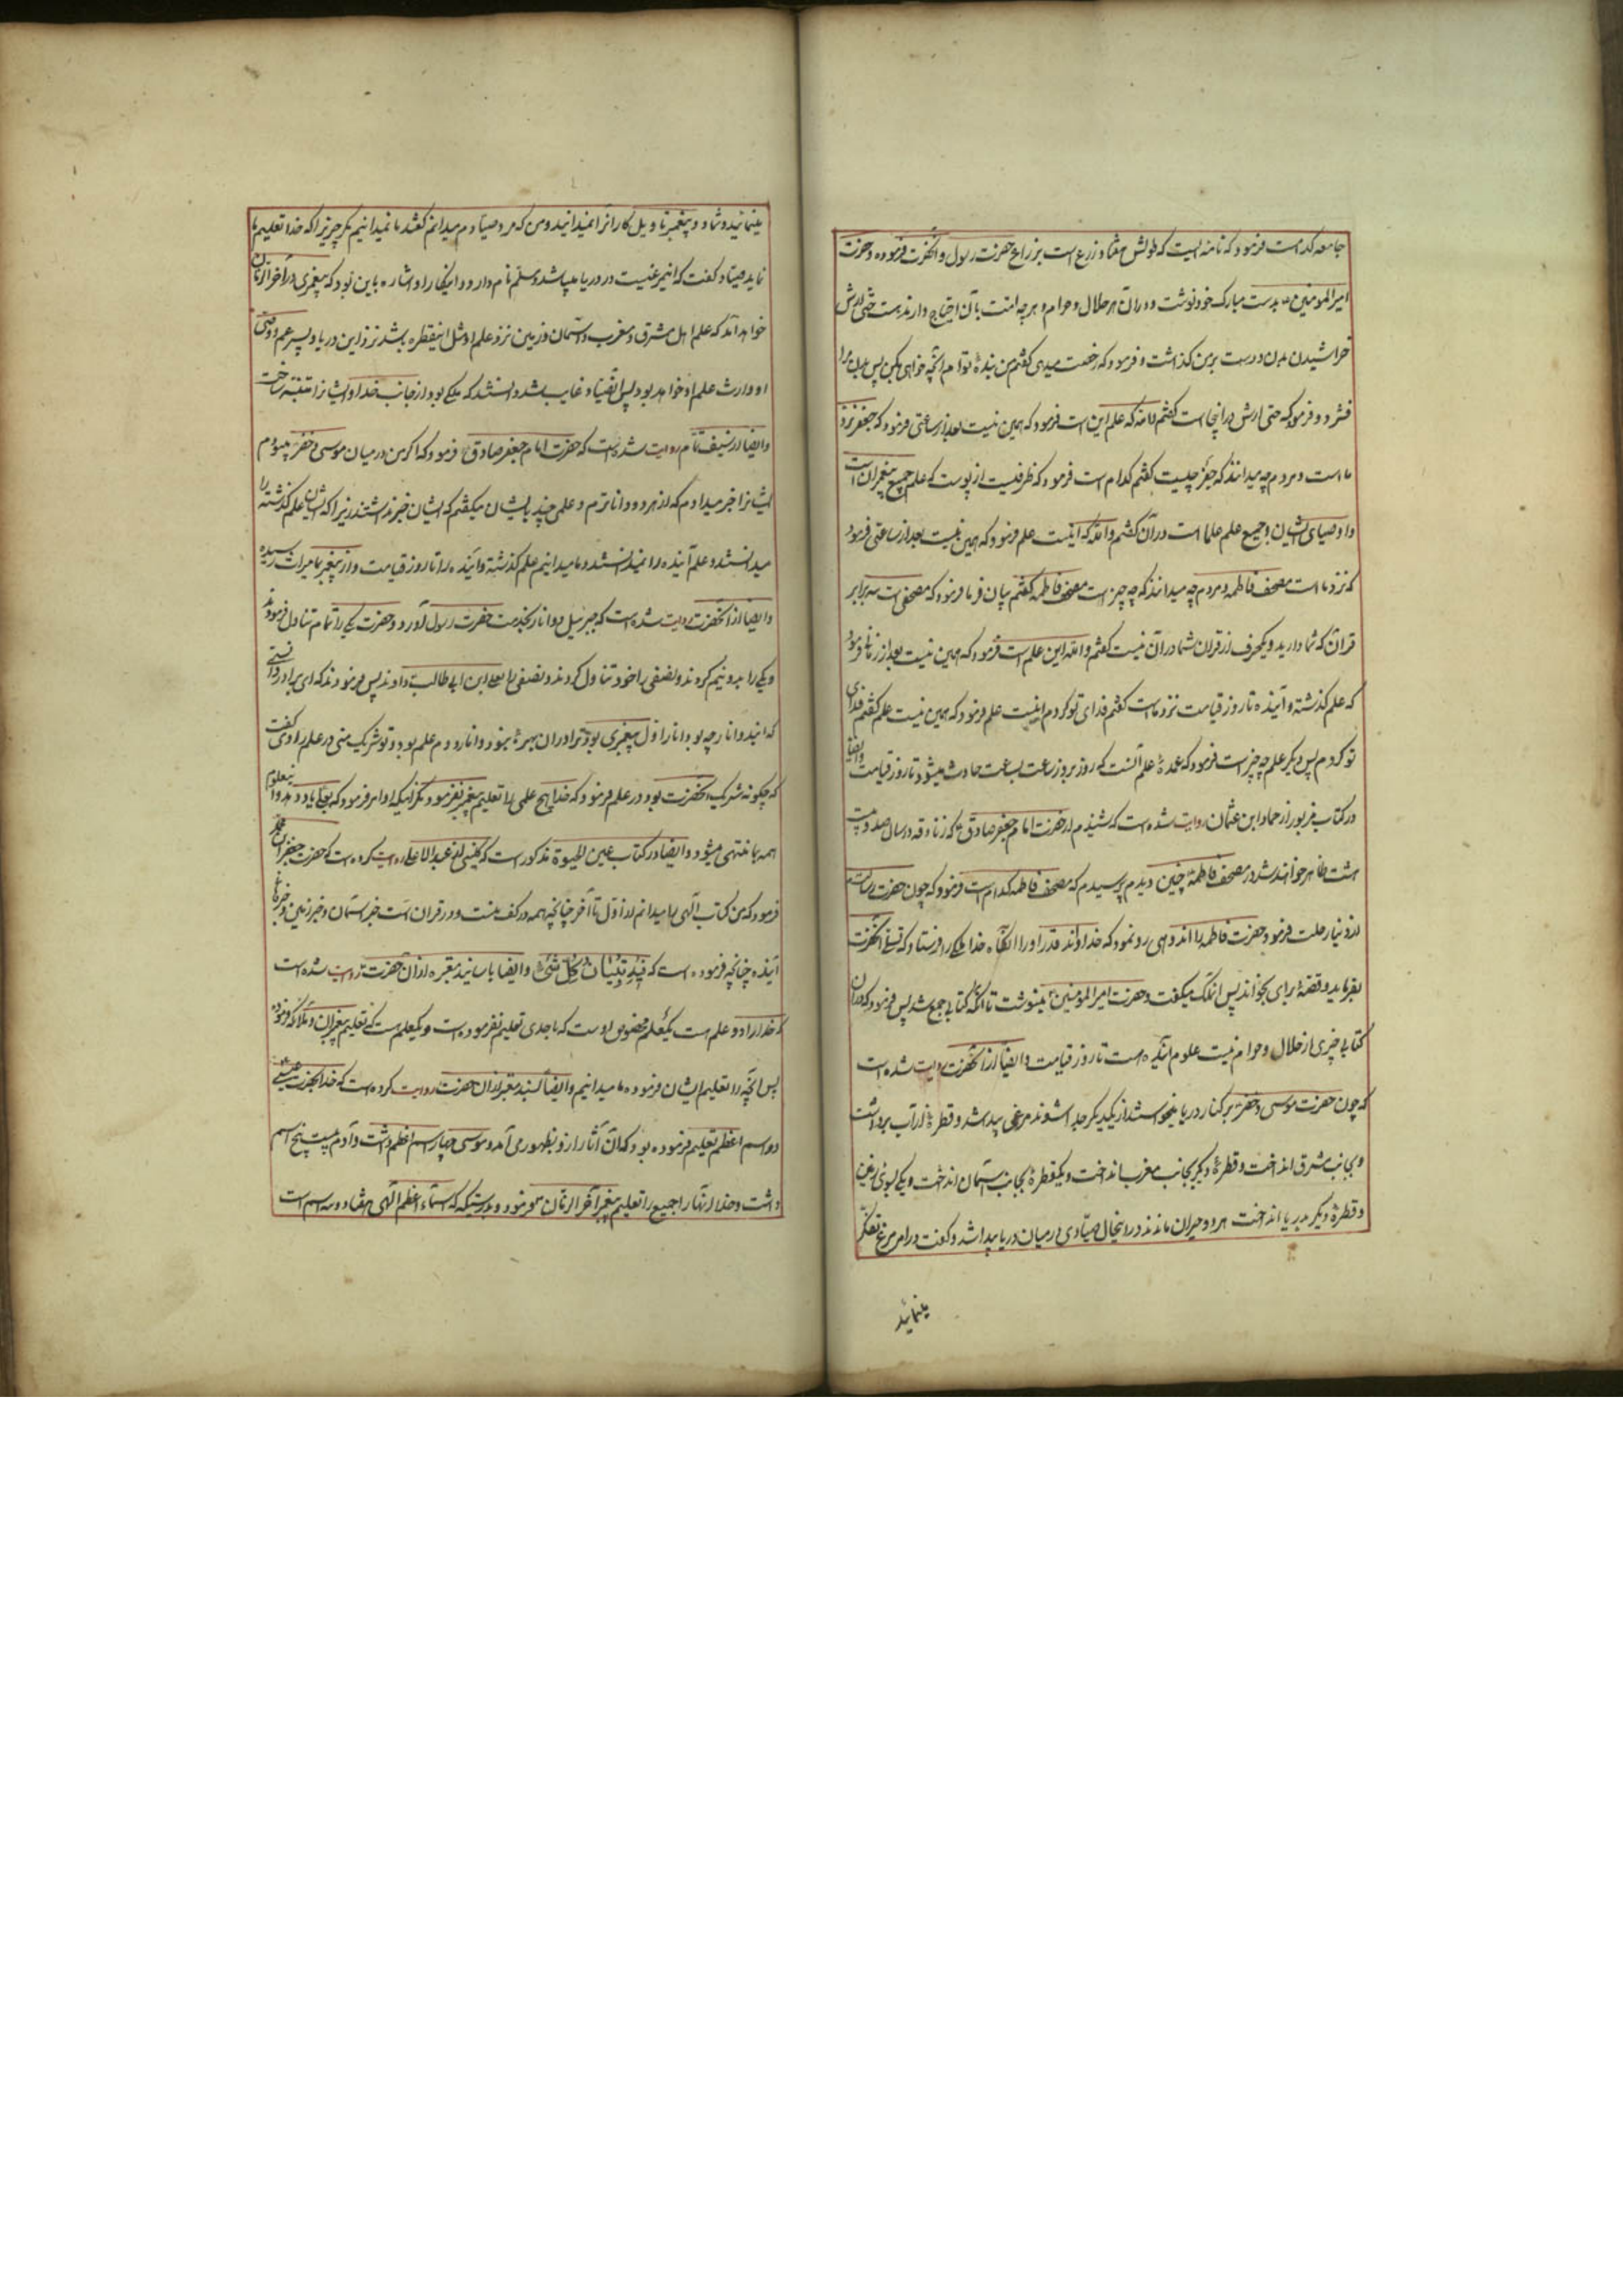 جامعه کدامست فرمود که نامه ایست که طولش هفتاد زرع است بزراع حضرت رسول و انحضرت فرموده و حضرت
امیرالمومنین بدست مبارک خود نوشت و در آن هر حلال و حرام و هر چه امت بآن احتیاج دارند هست حتی ارش
خراشیدن بدن و دست بر من گذاشت و فرمود که رخصت میدهی گفتم من بنده توام هر آنچه خواهی بکن پس بدن مرا
فشرد و فرمود که حتی ارش در اینجا است گفتم والله که علم این است فرمود که همین نیست بعد از ساعتی فرمود که جفر نزد
ما است و مردم چه میدانند که جفر چیست گفتم کدام است فرمود که ظرفیست از پوست که علم جمیع پیغمبران است
و اوصیای ایشان و جمیع علم علما است در آن گفتم والله که اینست علم فرمود که همین نیست بعد از ساعتی فرمود
که نزد ما است مصحف فاطمه و مردم چه میدانند که چه چیز است مصحف فاطمه گفتم بیان فرما فرمود که مصحفی است سه برابر
قران که شما دارید و یکحرف از قران شما در آن نیست گفتم والله این علم است فرمود که همین نیست بعد از زمانی فرمود
که علم گذشته و آینده تا روز قیامت نزد ماست گفتم فدای تو گردم اینست علم فرمود که همین نیست علم گفتم فدای
تو گردم پس دیگر علم چه چیز است فرمود که عمدهٔ علم آنست که روز بروز ساعت بساعت حادث میشود تا روز قیامت و ایضا
در کتاب مزبور از حماد ابن عثمان روایت شده است که شنیدم از حضرت امام جعفر صادق که زنادقه در سال صد و بیست
هشت ظاهر خواهند شد در مصحف فاطمه چنین دیدم پرسیدم که مصحف فاطمه کدام است فرمود که چون حضرت رسالت
از دنیا رحلت فرمود حضرت فاطمه را اندوهی رو نمود که خداوند قدر او را آنگاه خدا ملکی را فرستاد که تسلی آنحضرت
بفرماید و قصهٔ برای بخواند پس انملک میگفت و حضرت امیرالمومنین مینوشت تا آنکه کتابی جمع شد پس فرمود که در آن
کتابی چیزی از حلال و حرام نیست علوم آینده است تا روز قیامت و ایضا از آنحضرت روایت شده است
که چون حضرت موسی و خضر بر کنار دریا میخواستند از یکدیگر جدا شوند مرغی پیدا شد و قطرهٔ از آب برداشت
و بجانب مشرق انداخت و قطرهٔ دیگر بجانب مغرب انداخت و یکقطرهٔ بجانب آسمان انداخت و یکی بسوی زمین
و قطرهٔ دیگر بدریا انداخت هر دو حیران ماندند در اینحال صیادی در میان دریا پیدا شد و گفت در امر مرغ تفکر
مینمائید
مینمائید و شما دو پیغمبر تاویل کار انرا نمیدانید و من که مرد صیادم میدانم گفتند ما نمیدانیم مگر چیزیرا که خدا تعلیم ما
نماید صیاد گفت که این مرغیست در دریا میباشد و مسلم نام دارد و اینکار او اشاره باین بود که پیغمبری در آخر الزمان
خواهد آمد که علم اهل مشرق و مغرب و آسمان و زمین نزد علم او مثل اینقطره باشد نزد این دریا و پسر عم و وصی
او وارث علم او خواهد بود پس آنصیاد غایب شد و دانستند که ملکی بود از جانب خدا و ایشانرا متنبه ساخت
و ایضا از سیف تمام روایت شده است که حضرت امام جعفر صادق فرمود که اگر من در میان موسی و خضر میبودم
ایشانرا خبر میدادم که از هر دو داناترم و علمی چند بایشان میگفتم که ایشان خبر نداشتند زیرا که ایشان علم گذشته را
میدانستند و علم آینده را نمیدانستند و ما میدانیم علم گذشته و آینده را تا روز قیامت و از پیغمبر بما میراث رسیده
و ایضا از آنحضرت روایت شده است که جبرئیل دو انار بخدمت حضرت رسول آورد و حضرت یکی را تمام تناول فرمودند
و یکی را بدو نیم کردند و نصفی را خود تناول کردند و نصفی را بعلی ابن ابی طالب دادند پس فرمودند که ای برادر دانستی
که ایندو انار چه بود انار اول پیغمبری بود ترا در آن بهرهٔ نبود و انار دوم علم بود و تو شریک منی در علم راوی گفت
که چگونه شریک آنحضرت بود در علم فرمود که خدا هیچ علمی را تعلیم پیغمبر نفرمود مگر اینکه او امر فرمود که بعلی یاد دهد و آن علوم
همه بما منتهی میشود و ایضا در کتاب عین الحیوة مذکور است که کلینی از عبدالاعلی روایت کرده است که حضرت جعفر ابن محمد
فرمود که من کتاب الهی را میدانم از اول تا آخر چنانچه همه در کف منست و در قران است خبر آسمان و خبر زمین و خبرهای
آینده چنانچه فرموده است که فیهِ تِبْیٰانُ کُلِّ شَیْءٍ و ایضا باسانید معتبره از آن حضرت روایت شده است
که خدا را دو علم است یکعلم مخصوص اوست که باحدی تعلیم نفرموده است و یکعلم است که تعلیم پیغمبران و ملائکه فرموده
پس آنچه را تعلیم ایشان فرموده ما میدانیم و ایضا بسند معتبر از آن حضرت روایت کرده است که خدا بحضرت عیسی
دو اسم اعظم تعلیم فرموده بود که آن آثار از و بظهور می آمد و موسی چهار اسم اعظم داشت و آدم بیست پنج اسم
داشت و خدا از آنها را جمیع را تعلیم پیغمبر آخر الزمان فرمود و بدرستیکه که اسماء اعظم الهی هفتاد و سه اسم است